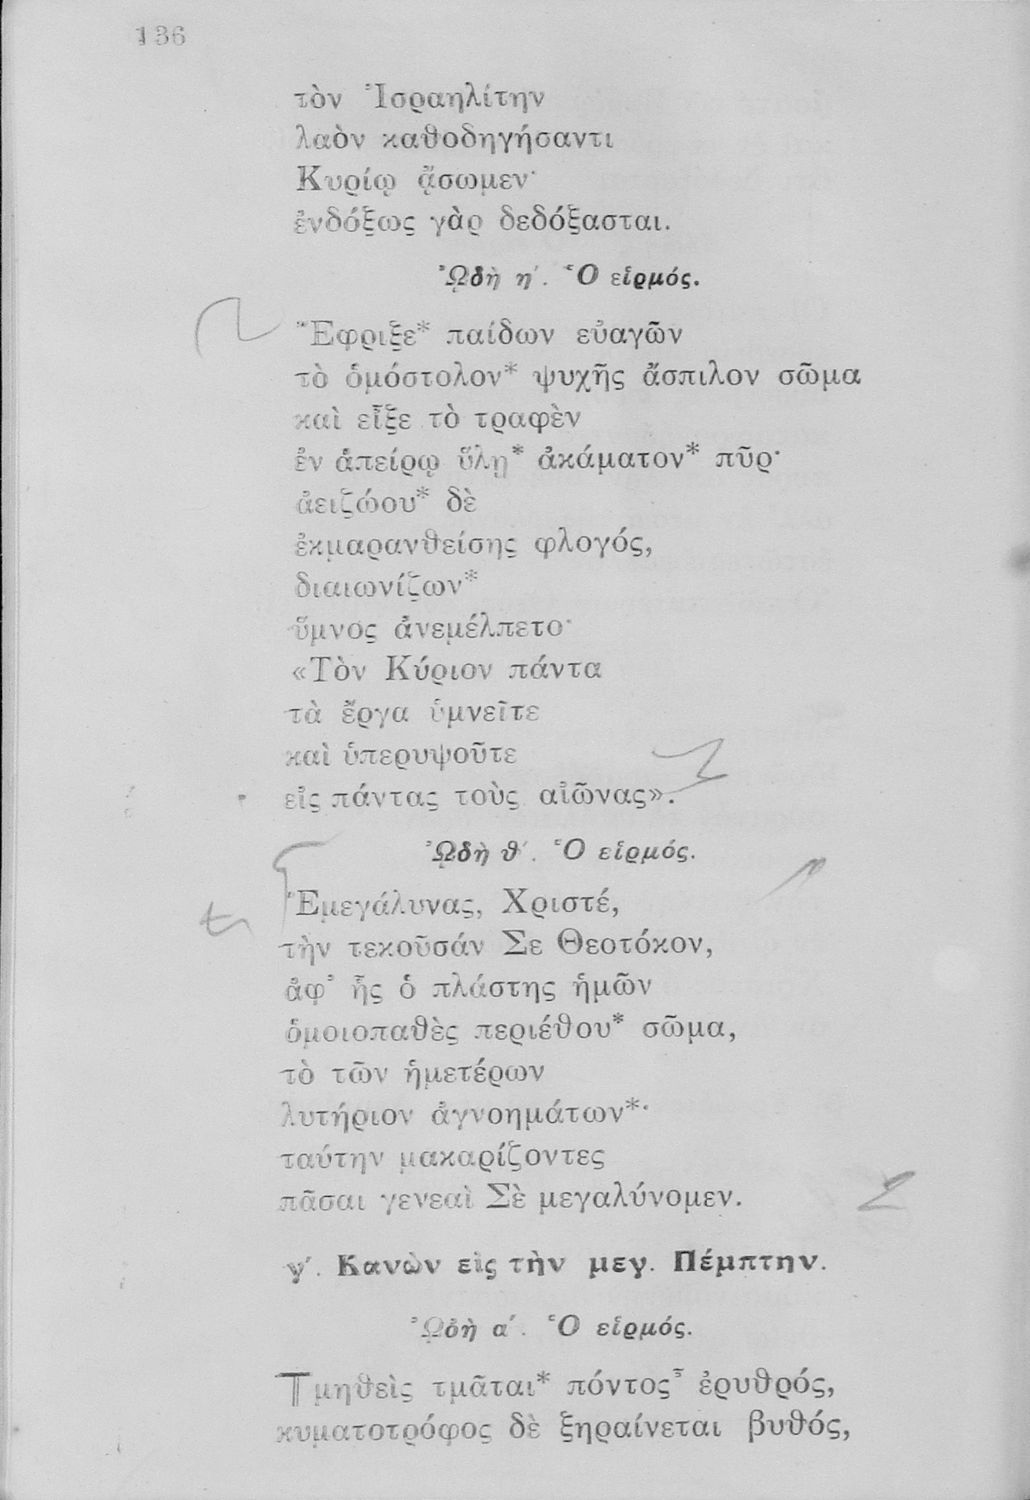 136
τὸν Ἰσραηλίτην
λαὸν καθοδηγήσαντι
Κυρίῳ ᾄσωμεν·
ἐνδόξως γὰρ δεδόξασται.
ᾨδὴ η΄. Ὁ εἱρμός.
Ἔφριξε* παίδων εὐαγῶν
τὸ ὁμόστολον* ψυχῆς ἄσπιλον σῶμα
καὶ εἶξε τὸ τραφὲν
ἐν ἀπείρῳ ὕλῃ* ἀκάματον* πῦρ·
ἀειζώου* δὲ
ἐκμαρανθείσης φλογός,
διαιωνίζων*
ὕμνος ἀνεμέλπετο·
«Τὸν Κύριον πάντα
τὰ ἔργα ὑμνεῖτε
καὶ ὑπερυψοῦτε
εἰς πάντας τοὺς αἰῶνας».
ᾨδὴ θ΄. Ὁ εἱρμός.
Ἐμεγάλυνας, Χριστέ,
τὴν τεκοῦσάν Σε Θεοτόκον,
ἀφ' ἧς ὁ πλάστης ἡμῶν
ὁμοιοπαθὲς περιέθου* σῶμα,
τὸ τῶν ἡμετέρων
λυτήριον ἀγνοημάτων*·
ταύτην μακαρίζοντες
πᾶσαι γενεαὶ Σὲ μεγαλύνομεν.
γ΄. Κανὼν εἰς τὴν μεγ. Πέμπτην.
ᾨδὴ α΄. Ὁ εἱρμός.
Τμηθεὶς τμᾶται* πόντος* ἐρυθρός,
κυματοτρόφος δὲ ξηραίνεται βυθός,